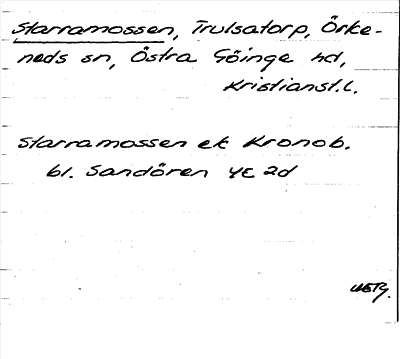 Starramossen, Trulsatorp, Örke-
neds sn, Östra Göinge hd,
Kristianst. l.
Starramossen ek Kronob.
bl. Sandören 4E 2d